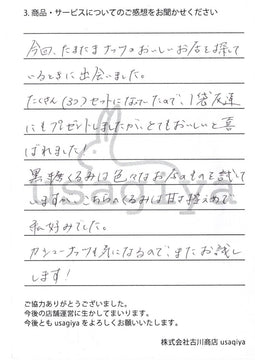 3. 商品・サービスについてのご感想をお聞かせください
今回、たまたまナッツのおいしいお店を探して
いるときに出会いました。
たくさん(3つ)セットになってたので、1袋友達
にもプレゼントしましたが、とてもおいしいと喜
ばれました!
黒糖くるみは色々なお店のものを試して
いますが、こちらのくるみは甘さ控えめで
私好みでした。
カシューナッツも気になるので、またお試し
します!
usagiya
ご協力ありがとうございました。
今後の店舗運営に生かしてまいります。
今後とも usagiya をよろしくお願いいたします。
株式会社古川商店 usagiya